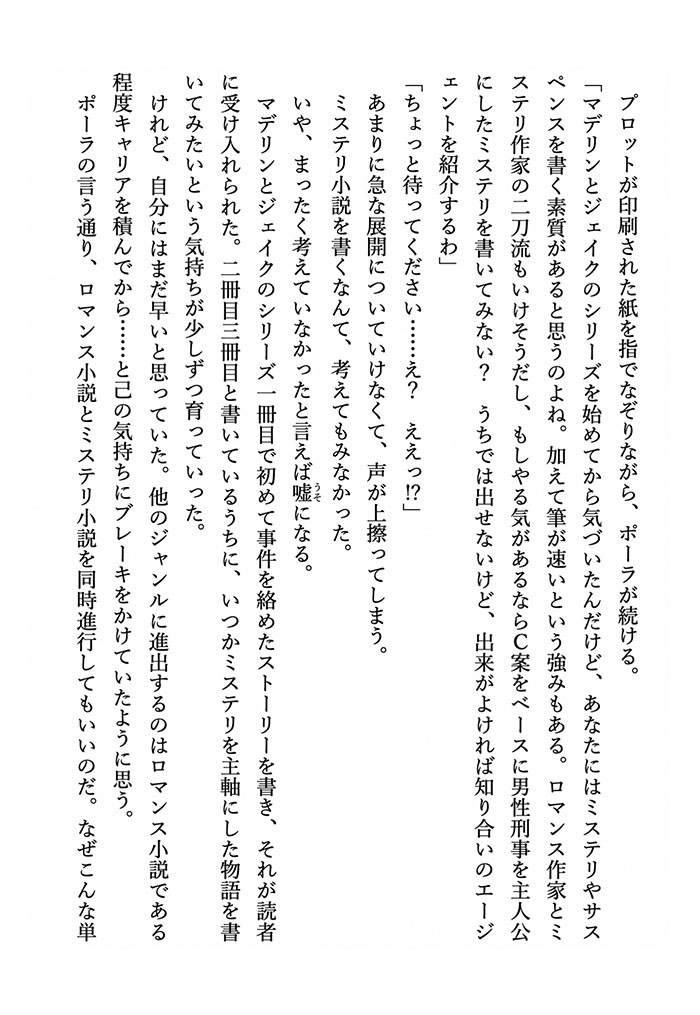 プロットが印刷された紙を指でなぞりながら、ポーラが続ける。
「マデリンとジェイクのシリーズを始めてから気づいたんだけど、あなたにはミステリやサス
ペンスを書く素質があると思うのよね。加えて筆が速いという強みもある。ロマンス作家とミ
ステリ作家の二刀流もいけそうだし、もしやる気があるならC案をベースに男性刑事を主人公
にしたミステリを書いてみない？　うちでは出せないけど、出来がよければ知り合いのエージ
ェントを紹介するわ」
「ちょっと待ってください……え？　ええっ!?」
あまりに急な展開についていけなくて、声が上擦ってしまう。
ミステリ小説を書くなんて、考えてもみなかった。
いや、まったく考えていなかったと言えば嘘うそになる。
マデリンとジェイクのシリーズ一冊目で初めて事件を絡めたストーリーを書き、それが読者
に受け入れられた。二冊目三冊目と書いているうちに、いつかミステリを主軸にした物語を書
いてみたいという気持ちが少しずつ育っていった。
けれど、自分にはまだ早いと思っていた。他のジャンルに進出するのはロマンス小説である
程度キャリアを積んでから……と己の気持ちにブレーキをかけていたように思う。
ポーラの言う通り、ロマンス小説とミステリ小説を同時進行してもいいのだ。なぜこんな単